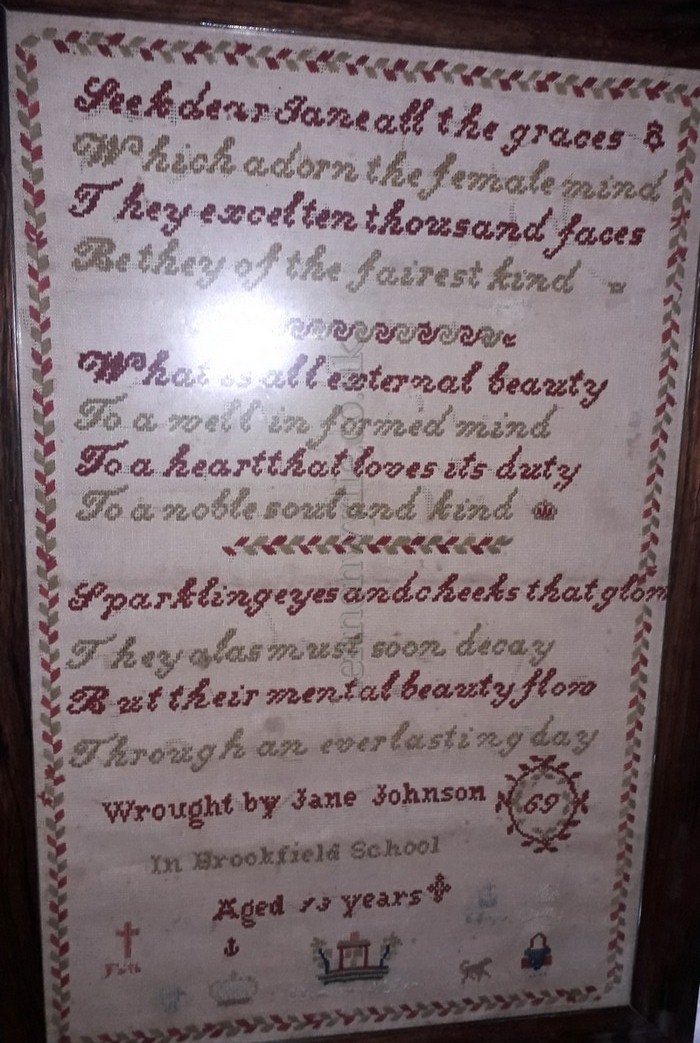 Seek dear Jane all the graces
Which adorn the female mind
They excel ten thousand faces
Be they of the fairest kind
What is all external beauty
To a well in formed mind
To a heart that loves its duty
To a noble soul and kind
Sparkling eyes and cheeks that glow
They alas must soon decay
But their mental beauty flow
Through an everlasting day
Wrought by Jane Johnson
69
In Brookfield School
Aged 13 years
Faith